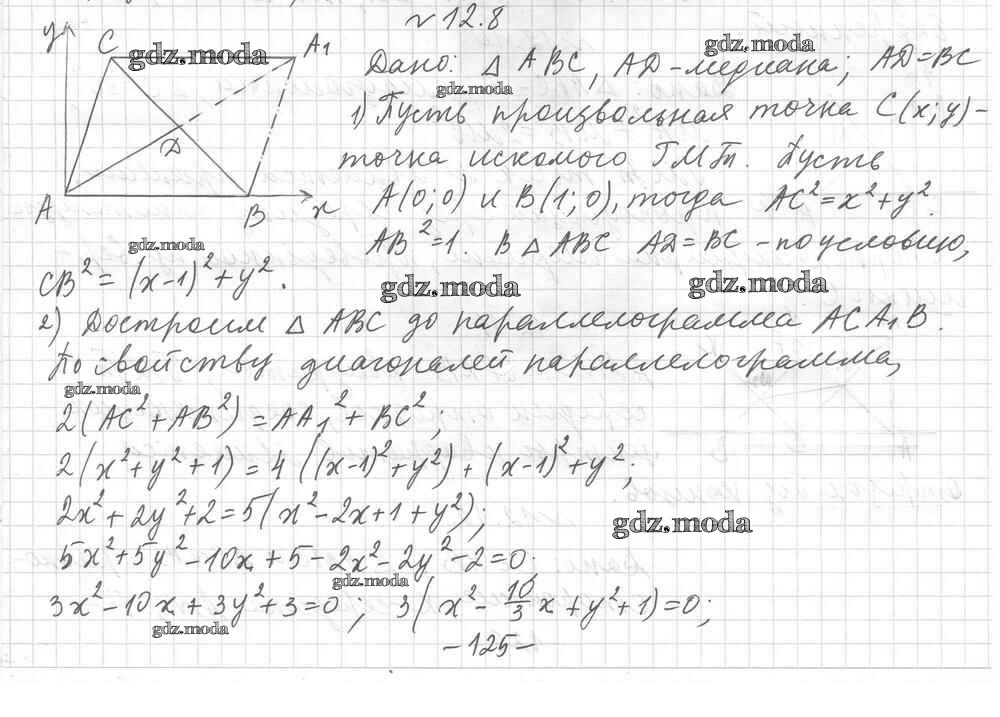 № 12.8
y
C
A₁
D
A
B
x
Дано: △ ABC, AD - медиана; AD = BC
1) Пусть произвольная точка C(x; y) -
точка искомого ГМТ. Пусть
A(0; 0) и B(1; 0), тогда AC² = x² + y².
AB² = 1. В △ ABC AD = BC - по условию,
CB² = (x-1)² + y².
2) Достроим △ ABC до параллелограмма ACA₁B.
По свойству диагоналей параллелограмма,
2(AC² + AB²) = AA₁² + BC²;
2(x² + y² + 1) = 4((x-1)² + y²) + (x-1)² + y²;
2x² + 2y² + 2 = 5(x² - 2x + 1 + y²);
5x² + 5y² - 10x + 5 - 2x² - 2y² - 2 = 0;
3x² - 10x + 3y² + 3 = 0; 3(x² - 10/3 x + y² + 1) = 0;
- 125 -
gdz.moda
gdz.moda
gdz.moda
gdz.moda
gdz.moda
gdz.moda
gdz.moda
gdz.moda
gdz.moda
gdz.moda